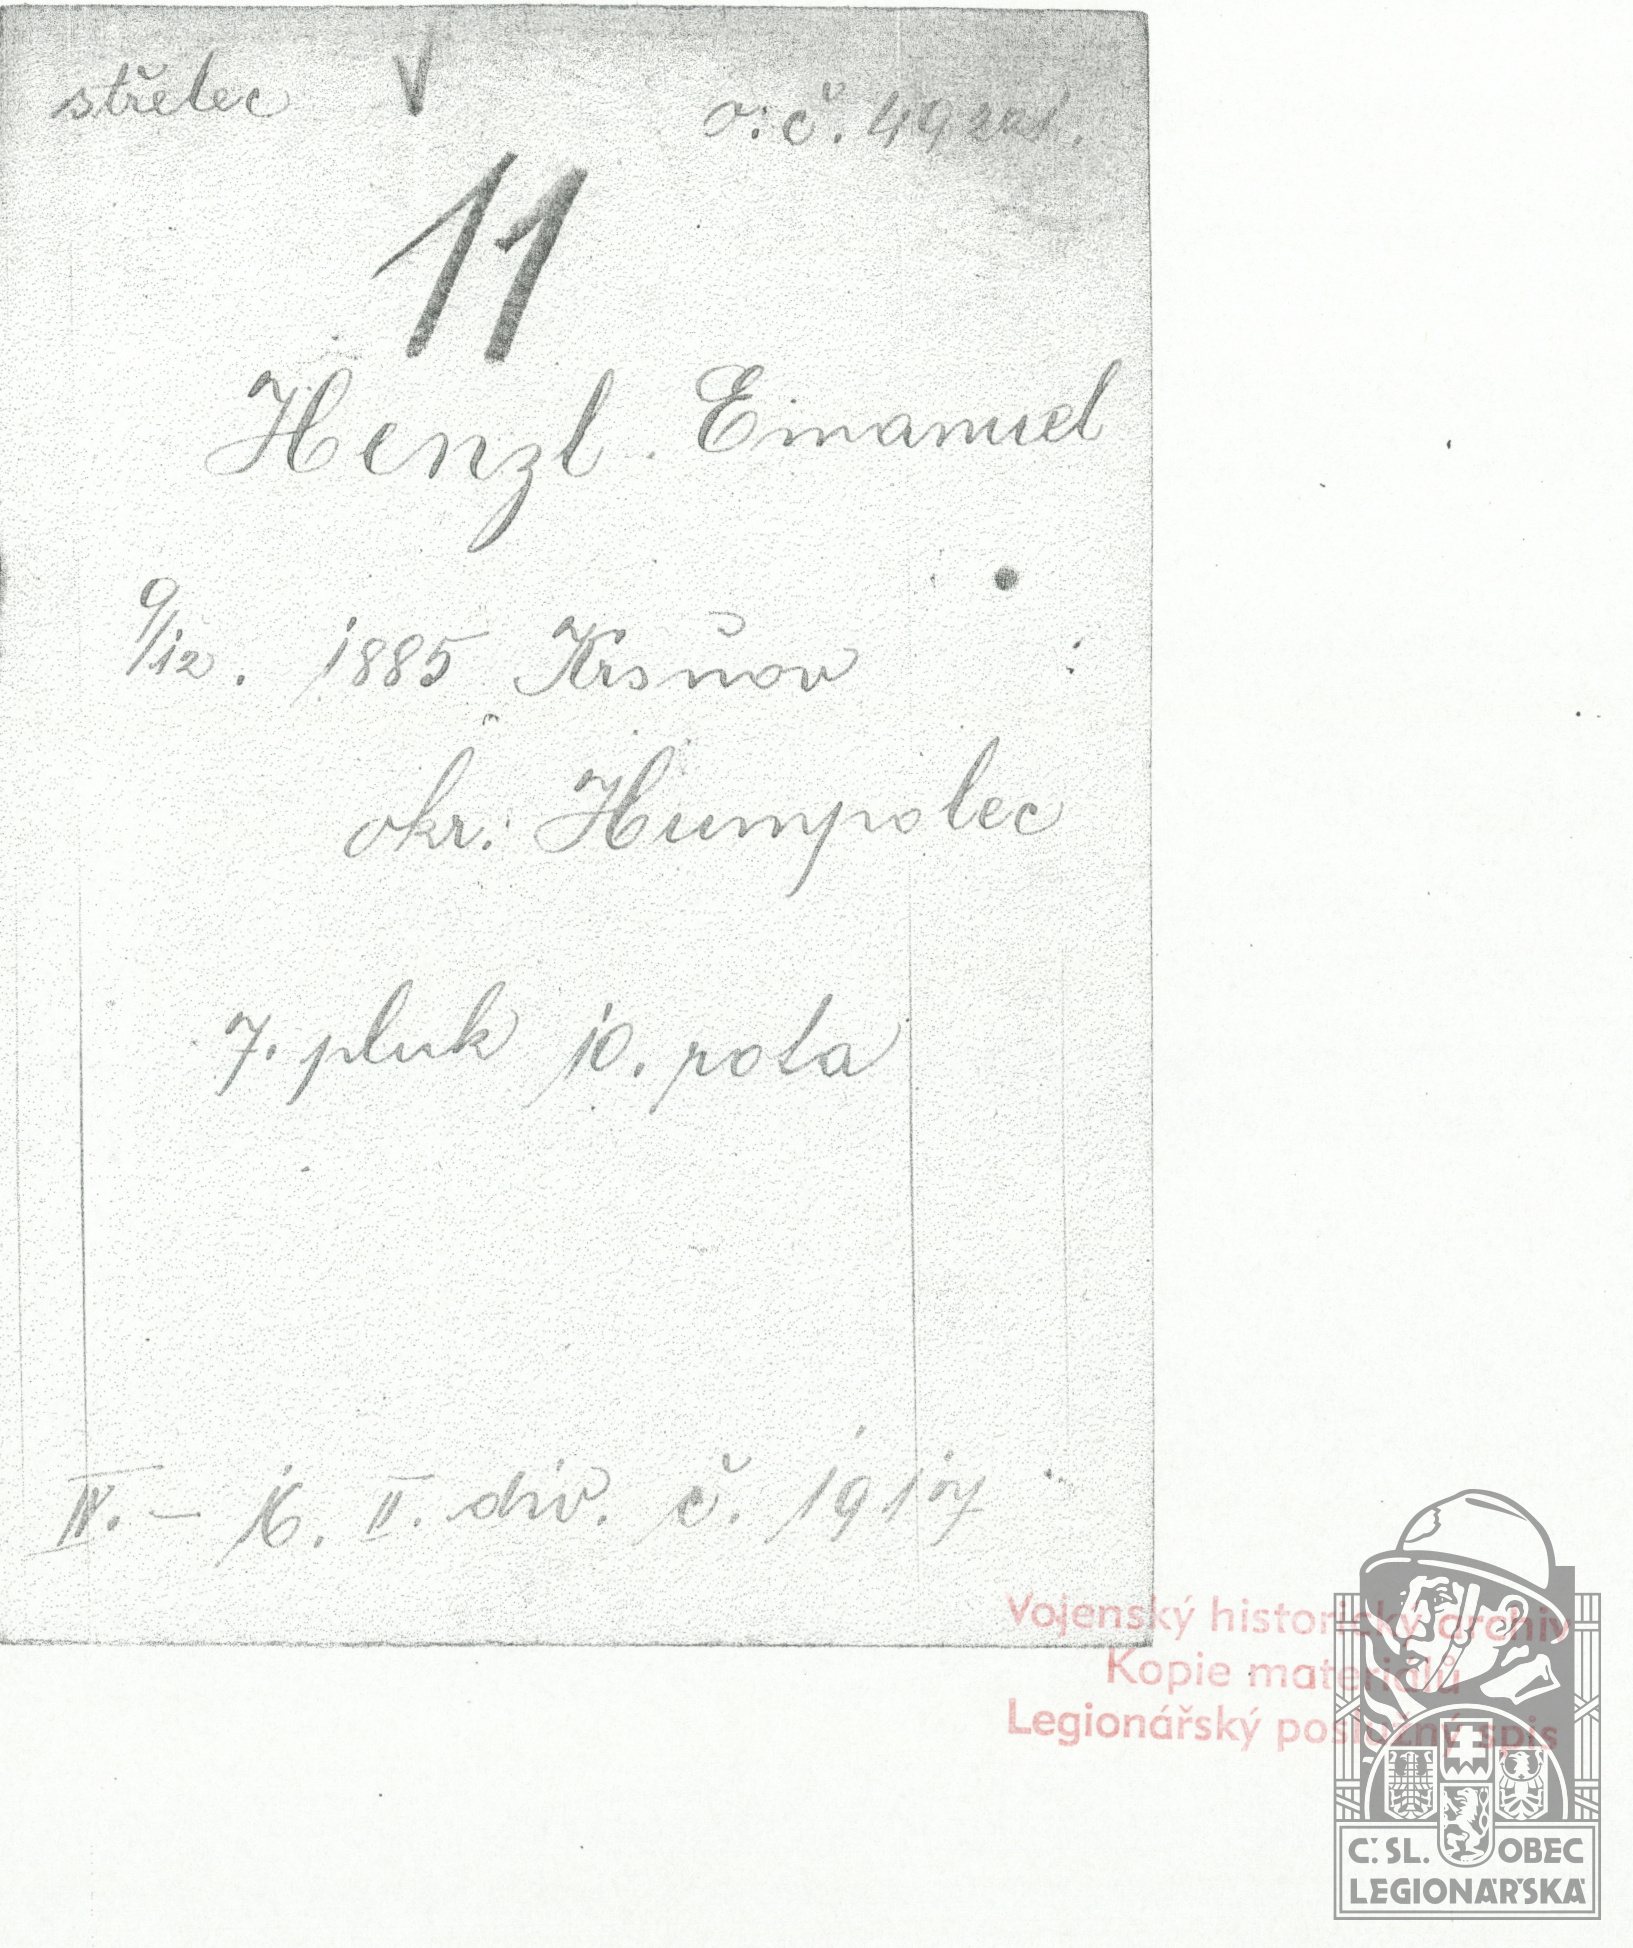 střelec V r. č. 49221.
11
Henzl Emanuel
9/12. 1885 Krsňov
okr. Humpolec
7. pluk 10. rota
IV. – 16. II. div. č. 1917
Vojenský historický archiv
Kopie materiálů
Legionářský poslužný spis
Č. SL. OBEC
LEGIONÁŘSKÁ